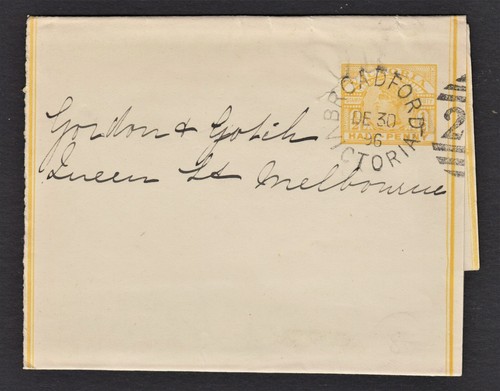 Gordon & Gotch
Queen St Melbourne
BROADFORD
DE 30
96
VICTORIA
2
HALF PENNY